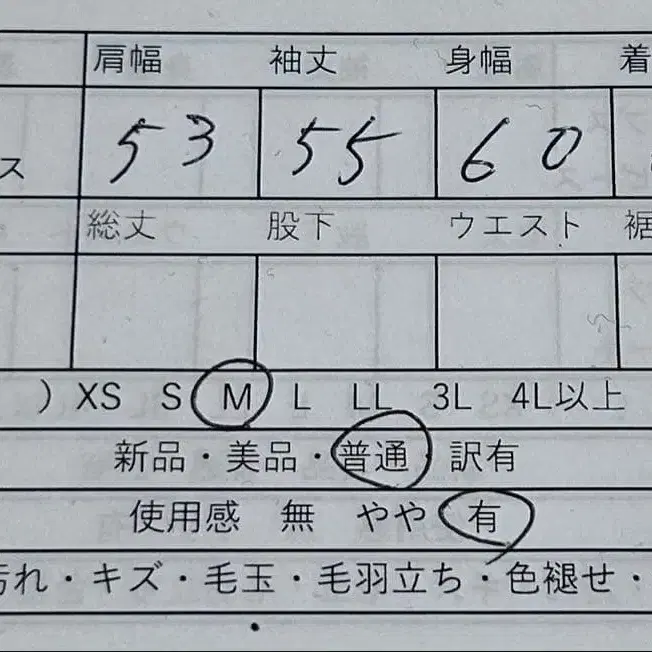 肩幅 袖丈 身幅 着
ス 53 55 60
総丈 股下 ウエスト 裾
）XS S M L LL 3L 4L以上
新品・美品・普通・訳有
使用感 無 やや 有
汚れ・キズ・毛玉・毛羽立ち・色褪せ・